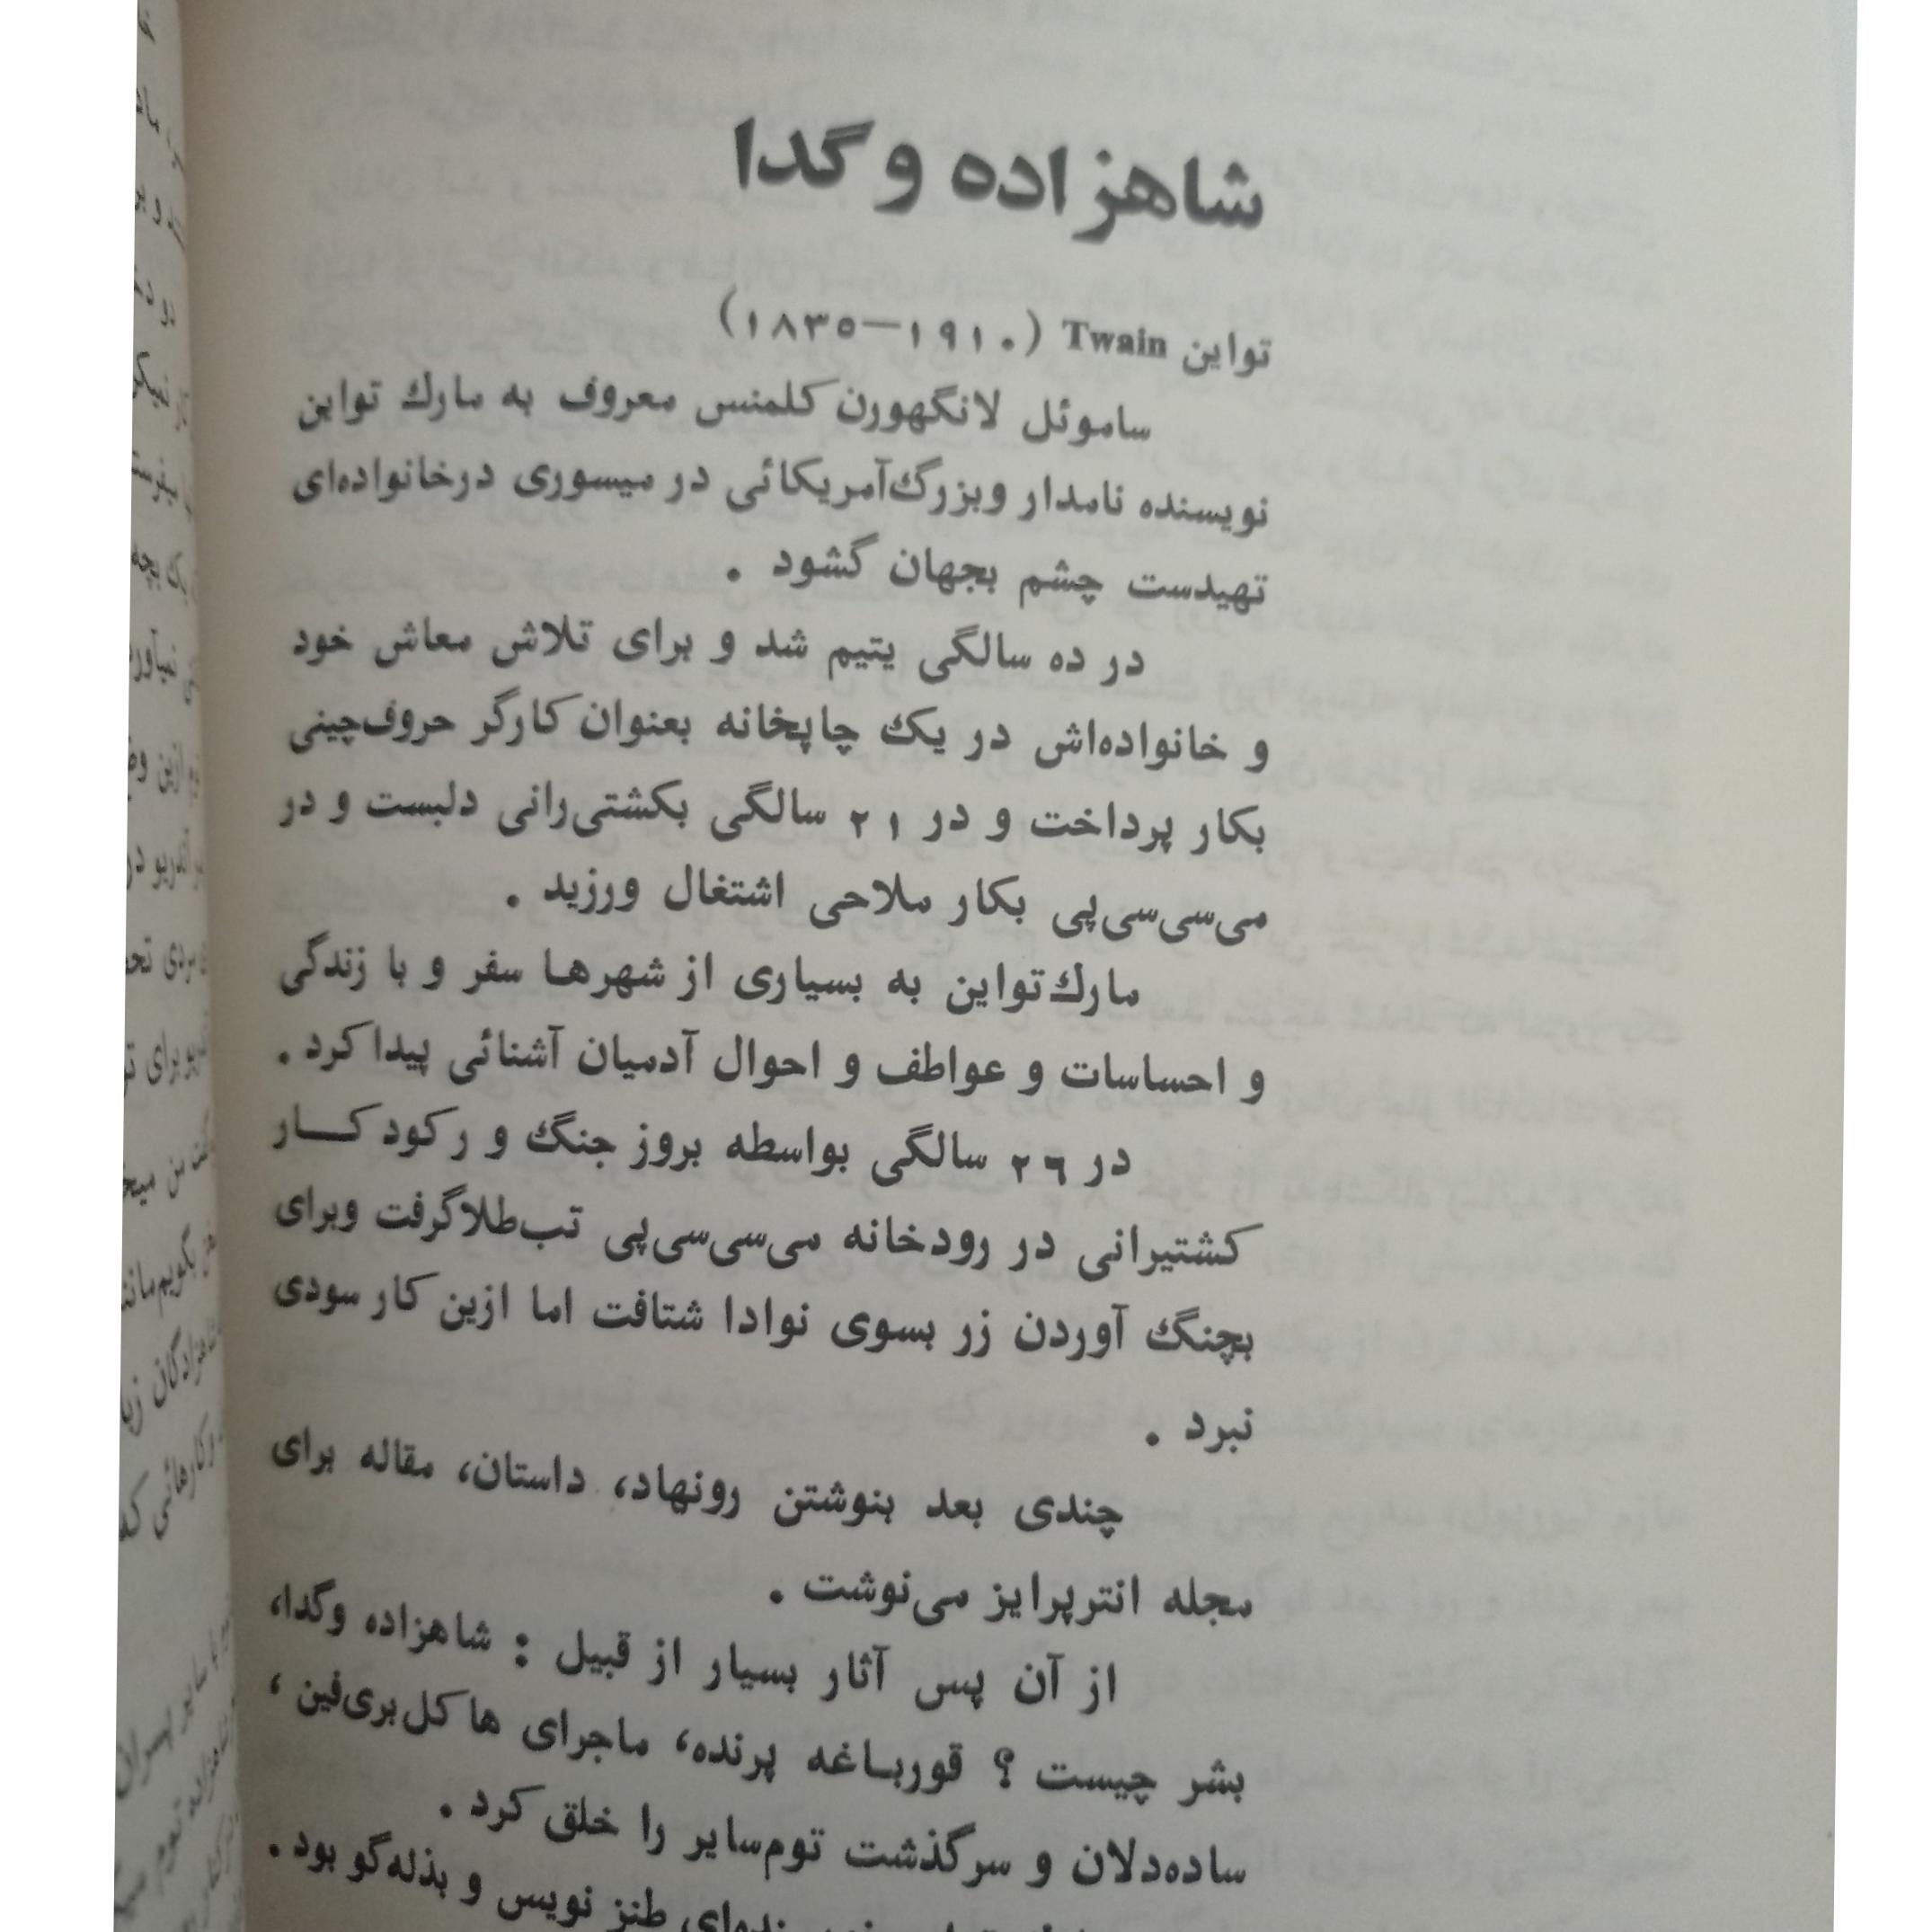 شاهزاده و گدا
تواین Twain (۱۹۱۰–۱۸۳۵)
ساموئل لانگهورن کلمنس معروف به مارك تواین
نویسنده نامدار وبزرگ‌آمریکائی در میسوری درخانواده‌ای
تهیدست چشم بجهان گشود .
در ده سالگی یتیم شد و برای تلاش معاش خود
و خانواده‌اش در یك چاپخانه بعنوان کارگر حروف‌چینی
بکار پرداخت و در ۲۱ سالگی بکشتی‌رانی دلبست و در
می‌سی‌سی‌پی بکار ملاحی اشتغال ورزید .
مارك‌تواین به بسیاری از شهرها سفر و با زندگی
و احساسات و عواطف و احوال آدمیان آشنائی پیدا کرد .
در ۲۶ سالگی بواسطه بروز جنگ و رکود کــار
کشتیرانی در رودخانه می‌سی‌سی‌پی تب‌طلاگرفت وبرای
بچنگ آوردن زر بسوی نوادا شتافت اما ازین کار سودی
نبرد .
چندی بعد بنوشتن رونهاد، داستان، مقاله برای
مجله انترپرایز می‌نوشت .
از آن پس آثار بسیار از قبیل : شاهزاده وگدا،
بشر چیست ؟ قورباغه پرنده، ماجرای هاکل‌بری‌فین ،
ساده‌دلان و سرگذشت توم‌سایر را خلق کرد .
طنز نویس و بذله‌گو بود .